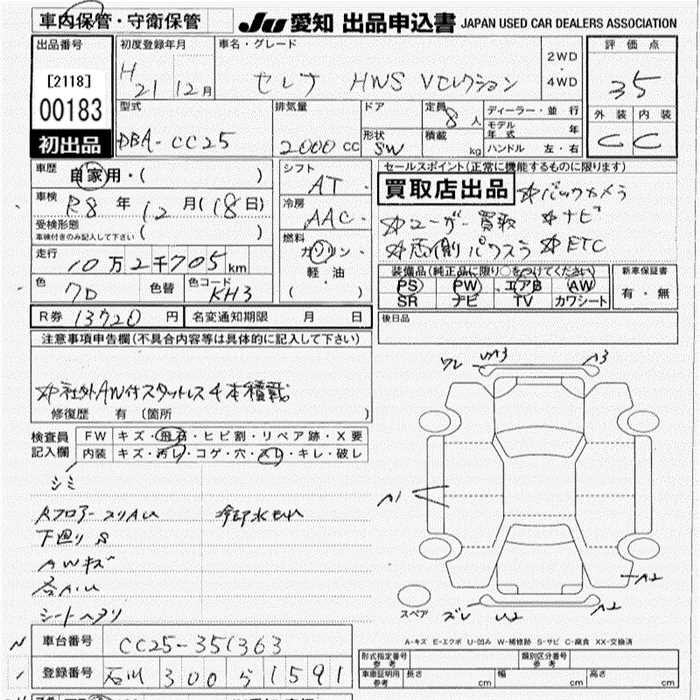 車内保管・守衛保管
JU 愛知 出品申込書 JAPAN USED CAR DEALERS ASSOCIATION
出品番号
[2118]
00183
初出品
初度登録年月
H 21 12月
車名・グレード
セレナ HWS Vセレクション
2WD
・
4WD
評価点
3.5
外装 内装
C C
型式
DBA-CC25
排気量
2000 CC
ドア
形状
SW
定員
8 人
積載
kg
ディーラー・並行
モデル年式 年
ハンドル 左・右
車歴
自家用・( )
車検
R8 年 12 月(18日)
受検形態
車検付きのみ記入して下さい
( )
走行
10万2千705 km
色
色替
色コード
KH3
シフト
AT
冷房
AAC
燃料
ガソリン・
軽油
( )
セールスポイント(正常に機能するものに限ります)
買取店出品
☆バックカメラ
☆ユーザー買取 ☆ナビ
☆両側パワスラ ☆ETC
装備品(純正品に限り○をつけてください)
PS PW エアB AW
SR ナビ TV カワシート
新車保証書
有・無
R券 13720 円
名変通知期限 月 日
後日品
注意事項申告欄(不具合内容等は具体的に記入して下さい)
☆社外AW付スタットレス4本積載
修復歴 有 〔箇所 )
検査員
記入欄
FW キズ・飛石・ヒビ割・リペア跡・X要
内装 キズ・汚れ・コゲ・穴・スレ・キレ・破レ
シミ
冷却水モレ
下廻りS
AWキズ
シートヘタリ
ワレ A3
A1
A2
スペア ズレ U2 A2
A-キズ E-エクボ U-凹み W-補修跡 S-サビ C-腐食 XX-交換済
車台番号
CC25-351363
登録番号
石川 300 ら 1591
形式指定番号
参考
類別区分番号
参考
車庫証明用
参考
長さ cm 幅 cm 高さ cm